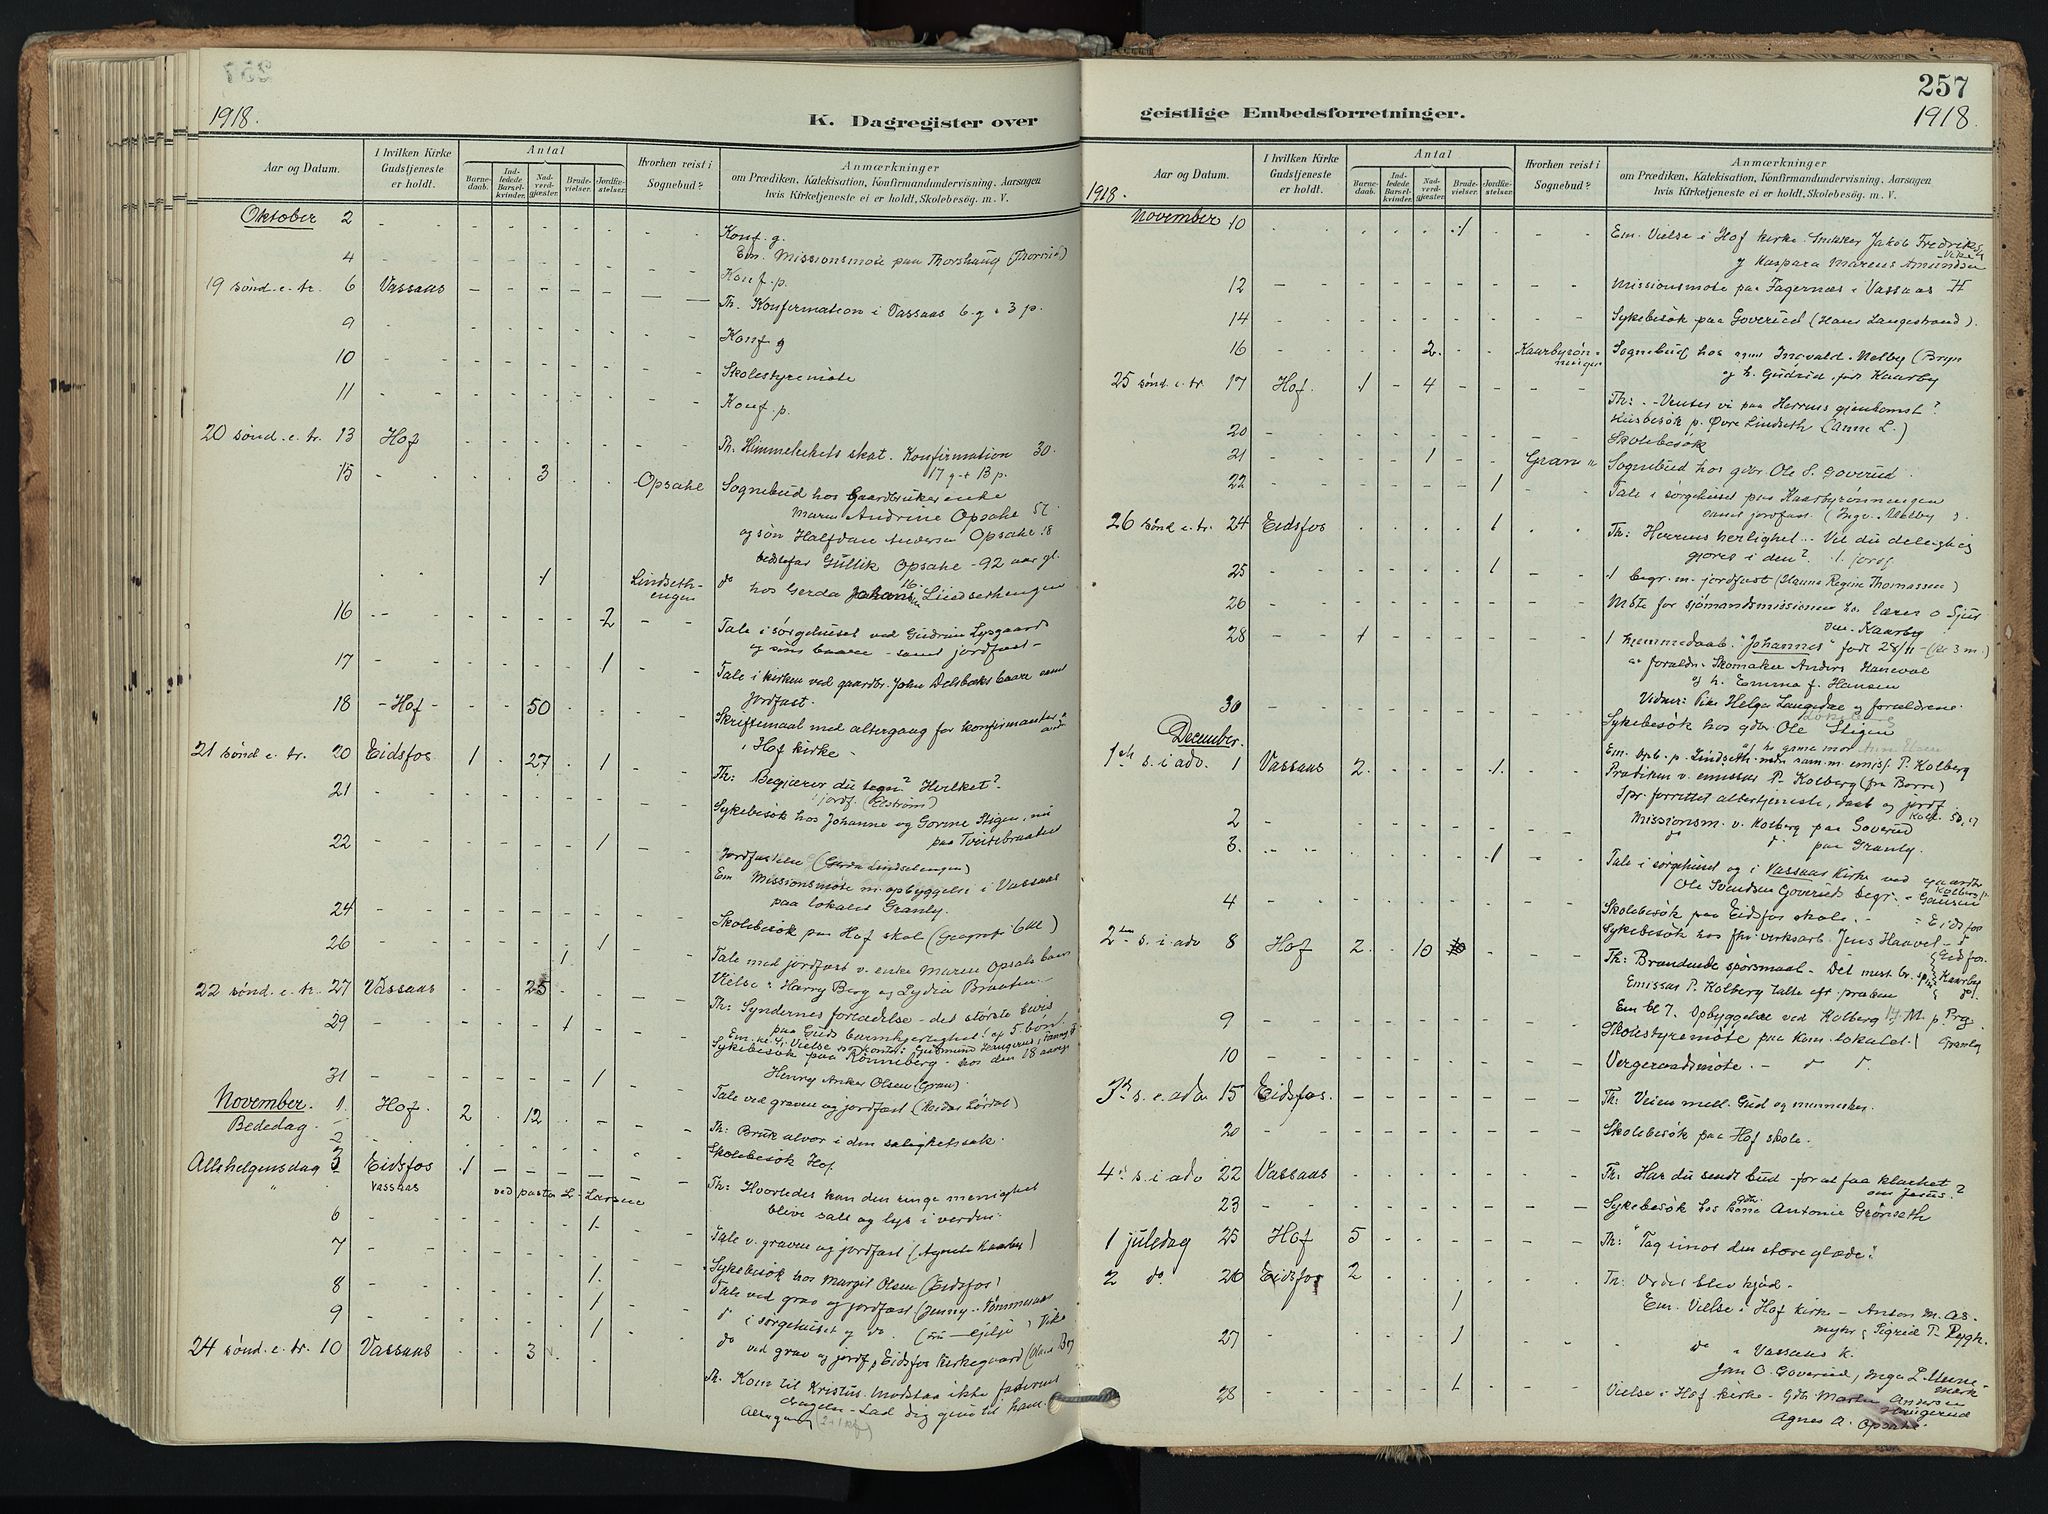 257
1918.
K. Dagregister over
Aar og Datum.
I hvilken Kirke Gudstjeneste er holdt.
Antal
Barnedaab.
Indledede Barselkvinder.
Nadverdgjester.
Brudevielser.
Jordfæstelser.
Hvorhen reist i Sognebud?
Anmærkninger
om Prædiken, Katekisation, Konfirmandundervisning, Aarsagen
hvis Kirketjeneste ei er holdt, Skolebesøg. m. V.
Oktober 2 Konf. g.
4 Em. Missionsmøte paa Thorshaug
Konf. p.
19 sønd. e. tr. 6 Vassaas Th. Konfirmation i Vassaas 6 g. + 3 p.
9 Konf g
10 Skolestyremøte
11 Konf. p.
20 sønd. e. tr. 13 Hof Th. Himmelrikets skat. Konfirmation 30.
17 g + 13 p.
15 3 Opsahl Sognebud hos Gaardbruker enke
Maren Andrine Opsahl
og søn Halfdan Andersen Opsahl 18
bedstefar Gullik Opsahl - 92 aar gl.
1 Lindseth-engen do hos Gerda Lindsethengen 16
16 2 Tale i sørgehuset ved Gudrun Lysgaards
og søns baare - samt jordfæst -
17 1 Tale i kirken ved gaardbr. John baare samt
jordfæst.
18 - Hof 50 Skriftemaal med altergang for konfirmanter
i Hof kirke -
21 sønd e. tr. 20 Eidsfos 1 27 1 Th: Begjærer du tegn? Hvilket?
1 jordf.
21 Sykebesøk hos Johanne og Stigen, nu
paa
22 1 Jordfæstelse (Gerda Lindsethengen)
Em Missionsmøte m. opbyggelse i Vassaas
paa lokalet Granly.
24 Skolebesøk paa Hof skole
26 1 Tale med jordfæst v. enke Maren Opsals baare
1 Vielse: Harry Berg og Lydia Braaten -
22 sønd. e. tr. 27 Vassaas 25 Th: Syndernes forladelse - det største bevis
paa Guds barmhjertighet!
29 1 Em. Vielse
Sykebesøk paa Rønneberg - hos den 18 aarige
Henry Anker Olsen (Gran).
31 1 Tale ved graven og jordfæst
November. 1 Hof. 2 12 Th: Bruk alvor i din salighetssak.
Bededag
2 Skolebesøk Hof
Allehelgensdag 3 Eidsfos 1 Th: Hvorledes kan den unge menighet
" Vassaas ved pastor L. Larsen
blive salt og lys i verden.
6 1 Tale v. graven og jordfæst (Agnete Kaarby)
7 Sykebesøk hos Margit Olsen (Eidsfos)
8 1 Tale ved grav og jordfæst
9 1 do i sørgehuset og do.
1 do ved grav og jordf. Eidsfos Kirkegaard
24 sønd. e. tr. 10 Vassaas 3 Th. Kom til Kristus. Modstaa ikke faderens
dragelse - Lad dig give til ham.
257
1918.
geistlige Embedsforretninger.
Aar og Datum.
I hvilken Kirke Gudstjeneste er holdt.
Antal
Barnedaab.
Indledede Barselkvinder.
Nadverdgjester.
Brudevielser.
Jordfæstelser.
Hvorhen reist i Sognebud?
Anmærkninger
om Prædiken, Katekisation, Konfirmandundervisning, Aarsagen
hvis Kirketjeneste ei er holdt, Skolebesøg. m. V.
1918.
November 10 1 Em. Vielse i Hof kirke. Snekker Jakob Fredriks
og Kaspara Amundsen
12 Missionsmøte paa Fagernæs i Vassaas
14 Sykebesøk paa Goverud (Hans Langestrand).
16 2 Kaarbyrønningen Sognebud hos Ingvald Melby (Bryn
og h. Gudrid, født Kaarby
25 sønd. e. tr. 17 Hof. 1 4 Th: - Venter vi paa Herrens gjenkomst?
20 Husbesøk p. Øvre Lindseth (Anne L.)
Skolebesøk
21 1 Gran Sognebud hos gdbr. Ole S. Goverud.
22 1 Tale i sørgehuset paa Kaarbyrønningen
samt jordfæst. (Ingv. Melby).
26 sønd e. tr. 24 Eidsfos 1 Th: Herrens herlighet. - Vil du delagtig
gjøres i den? 1 jordf.
25 1 1 begr. m. jordfæst (Hanna Regine Thomassen)
26 Møte for sjømandsmissionen hos lærer
Kaarby
28 1 1 hjemmedaab. "Johannes" født 28/11
av foreldre: Skomaker Anders Haneval
og h. Emma f. Hansen
Vidner: Pike Helga og forældrene.
30 Sykebesøk hos gdbr Ole Stigen
December.
1ste s. i adv. 1 Vassaas 2. 1. Em. opb. p. Lindseth nedre sam. m. emiss. P. Kolberg
Prædiken v. emissær P. Kolberg (fra Borre)
Spr. forrettet altertjeneste, daab og jordf.
2 Missionsm. v. Kolberg paa Goverud
3. 1 do do paa Granly.
Tale i sørgehuset og i Vassaas Kirke ved gaardbr
Ole Svendsen Goveruds begr.
4 Skolebesøk paa Eidsfos skole. - Eidsfos
Sykebesøk hos fhv. verksarb. Jens Haavel - do
2den s. i adv 8 Hof 2. 10 Th: Brændende spørsmaal -
Emissær P. Kolberg talte eft. præken
Em kl 7. Opbyggelse ved Kolberg
9 Skolestyremøte paa kom. lokalet Granly
10 Vergeraadsmøte. - do do.
3die s. e. adv 15 Eidsfos. Th: Veien mell. Gud og mennesker.
20 Skolebesøk paa Hof skole.
4de s. i adv 22 Vassaas Th: Har du sendt bud - for at faa klarhet
om Jesus?
23 Sykebesøk hos Antonie Grønseth
1 juledag 25 Hof 5 Th: "Tag imot den store glæde!
2 do 26 Eidsfos 2 Th: Ordet blev kjød -
1 Em. Vielse i Hof kirke - Anton M. Asmyhr & Sigrid P. Rygh.
27 1 do i Vassaas k.
Jan O. Goverud, Inga L.
28 1 Vielse i Hof kirke - Martin Andersen
Haugerud
Agnes A. Opsahl.